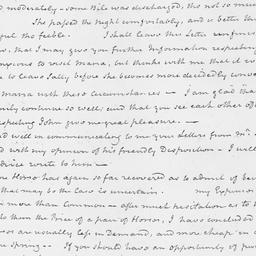 moderately — some Bile was discharged, tho not so much
She passed the Night comfortably, and is better th
but feeble. I shall leave this Letter unfinis
, that I may give you further Information respecting
anxious to visit Mana, but thinks with me that it w
to leave Sally before she becomes more decidedly conv
Mana with these Circumstances — I am glad tha
family continue so well, and that you see each other o
respecting John give me great pleasure. —
well in communicating to me your Letters from Mr.
with my opinion of his friendly Disposition — I will
advice write to him —
Horse has again so far recovered as to admit of be
that may be the Case is uncertain. my Expences
more than Common — after much hesitation as to
them the Price of a pair of Horses, I have concluded
are usually less in demand, and more cheap in
Spring — If you should have an opportunity of pu